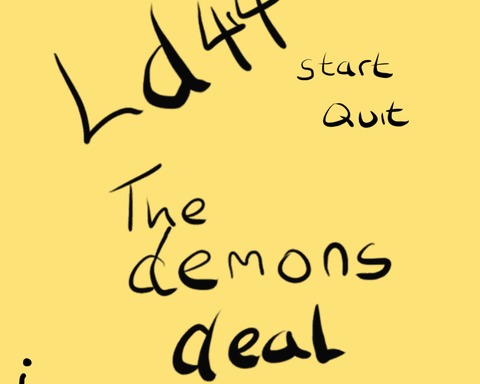 Ld44
start
Quit
The
demons
deal
i